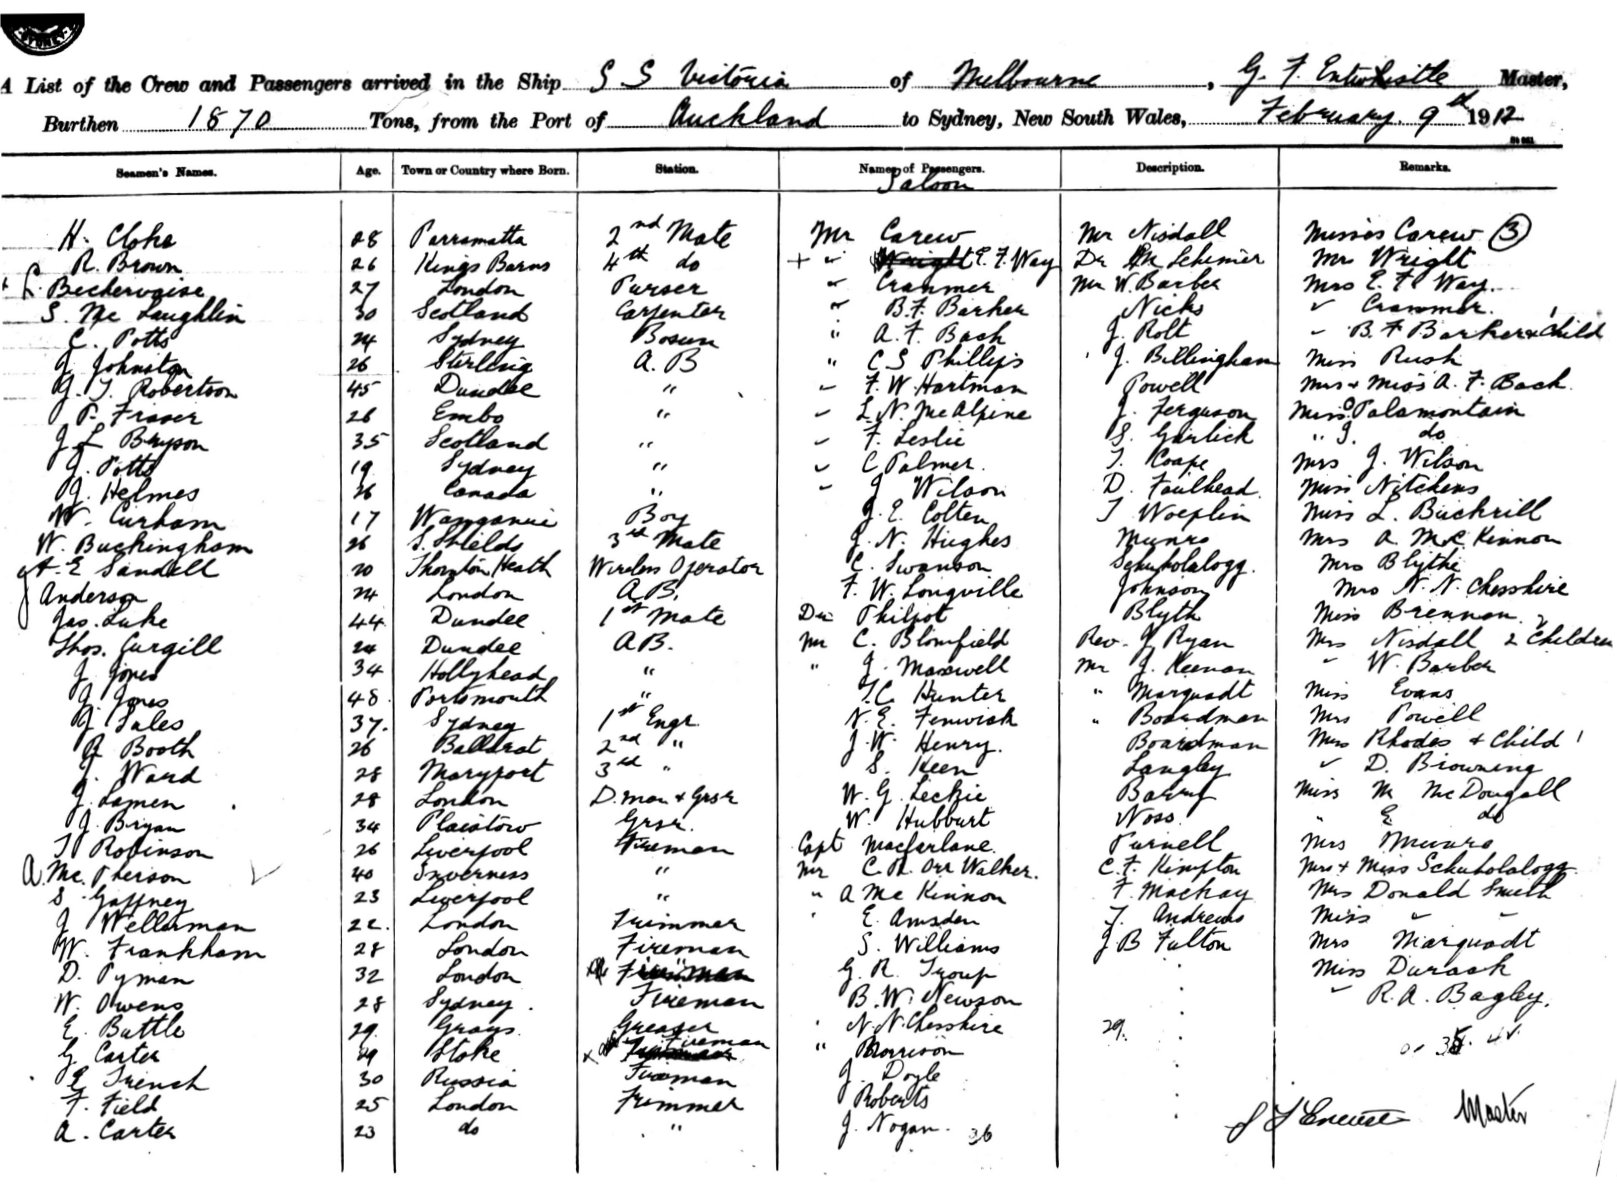 SYDNEY
A List of the Crew and Passengers arrived in the Ship S S Victoria of Melbourne, G. F. Entwhistle Master,
Burthen 1870 Tons, from the Port of Auckland to Sydney, New South Wales, February 9th 1912
Seamen's Names. Age. Town or Country where Born. Station. Names of Passengers. Description. Remarks.
Saloon
H. Cloke 28 Parramatta 2nd Mate Mr Carew Mr Nisdall Misses Carew (3)
R. Brown 26 Kings Barns 4th do + " E. F. Way Dr Schimer Mrs Wright
Bechervaise 27 London Purser " Cranmer Mr W. Barber Mrs E. F. Way
S. McLaughlin 30 Scotland Carpenter " B. F. Barker Nicks " Crammer. 1
C. Potts 24 Sydney Bosun " A. F. Bach J. Rolt " B. F Barker & Child
J. Johnston 26 Sterling A.B " C S Phillips J. Billingham Miss Rush
J. T. Robertson 45 Dundee " " F. W. Hartman Powell Mrs + Miss A. F. Bach
P. Fraser 26 Embo " " L. N. McAlpine J. Ferguson Miss Palamontain
J L Bryson 35 Scotland " " F. Leslie S. Garlick " J. do
J. Potts 19 Sydney " " C Palmer. T. Coape Mrs J. Wilson
J. Helmes 26 Canada " " J Wilson D. Faulhead. Miss Nitchens
W. Curham 17 Wanganui Boy J. E. Colten T Woeplin Miss L. Buckrill
W. Buckingham 26 S. Shields 3rd Mate J. N. Hughes Munro Mrs A. McKinnon
A. E Sandell 20 Thornton Heath Wireless Operator C. Swanson Schuholalogg. Mrs Blythe
J Anderson 24 London A.B. F. W. Longville Johnson Mrs N. N. Chesshire
Jas. Luke 44 Dundee 1st Mate Dr Philpot Blyth Miss Brennan. 2
Thos. Curgill 24 Dundee A.B. Mr C. Blomfield Rev. J Ryan Mrs Nisdall 2 Children
J Jones 34 Hollyhead " " J. Maxwell Mr J. Keenan " W. Barber
J Jones 48 Portsmouth " T.C Hunter " Marquadt Miss Evans
J Sales 37. Sydney 1st Engr. N. E. Fenwick " Boardman Mrs Powell
A Booth 26 Ballarat 2nd " J. W. Henry. Boardman Mrs Rhodes + Child 1
J. Ward 28 Maryport 3rd " S. Keen Langley " D. Browning
J. Lamen 28 London D. man + Grsr W. G. Leckie Barry Miss M McDougall
J. Bryan 34 Plaistow Grsr. W. Hubburt Noss " E do
T Robinson 26 Liverpool Fireman Capt Macfarlane Purnell Mrs Munro
A. McPherson 40 Inverness " Mr C. R. Orr Walker. C. F. Kimpton Mrs + Miss Schuholalogg
S Gaffney 23 Liverpool " " A McKinnon F. Mackay Mrs Donald Smith
J Wellerman 22. London Trimmer E. Amsden T. Andrews Miss " "
W. Frankham 28 London Fireman S. Williams J B Fulton Mrs Marquadt
D. Pyman 32 London G. R. Troup Miss Durack
W. Owens 28 Sydney. Fireman B. W. Newson " R. A. Bagley.
E. Buttle 29. Grays Greaser N. N. Chesshire 29.
G Carter 29 Stoke Fireman " Morrison
E French 30 Russia Fireman J. Doyle
F. Field 25 London Trimmer Roberts
A. Carter 23 do " J. Nogan. 36
Master